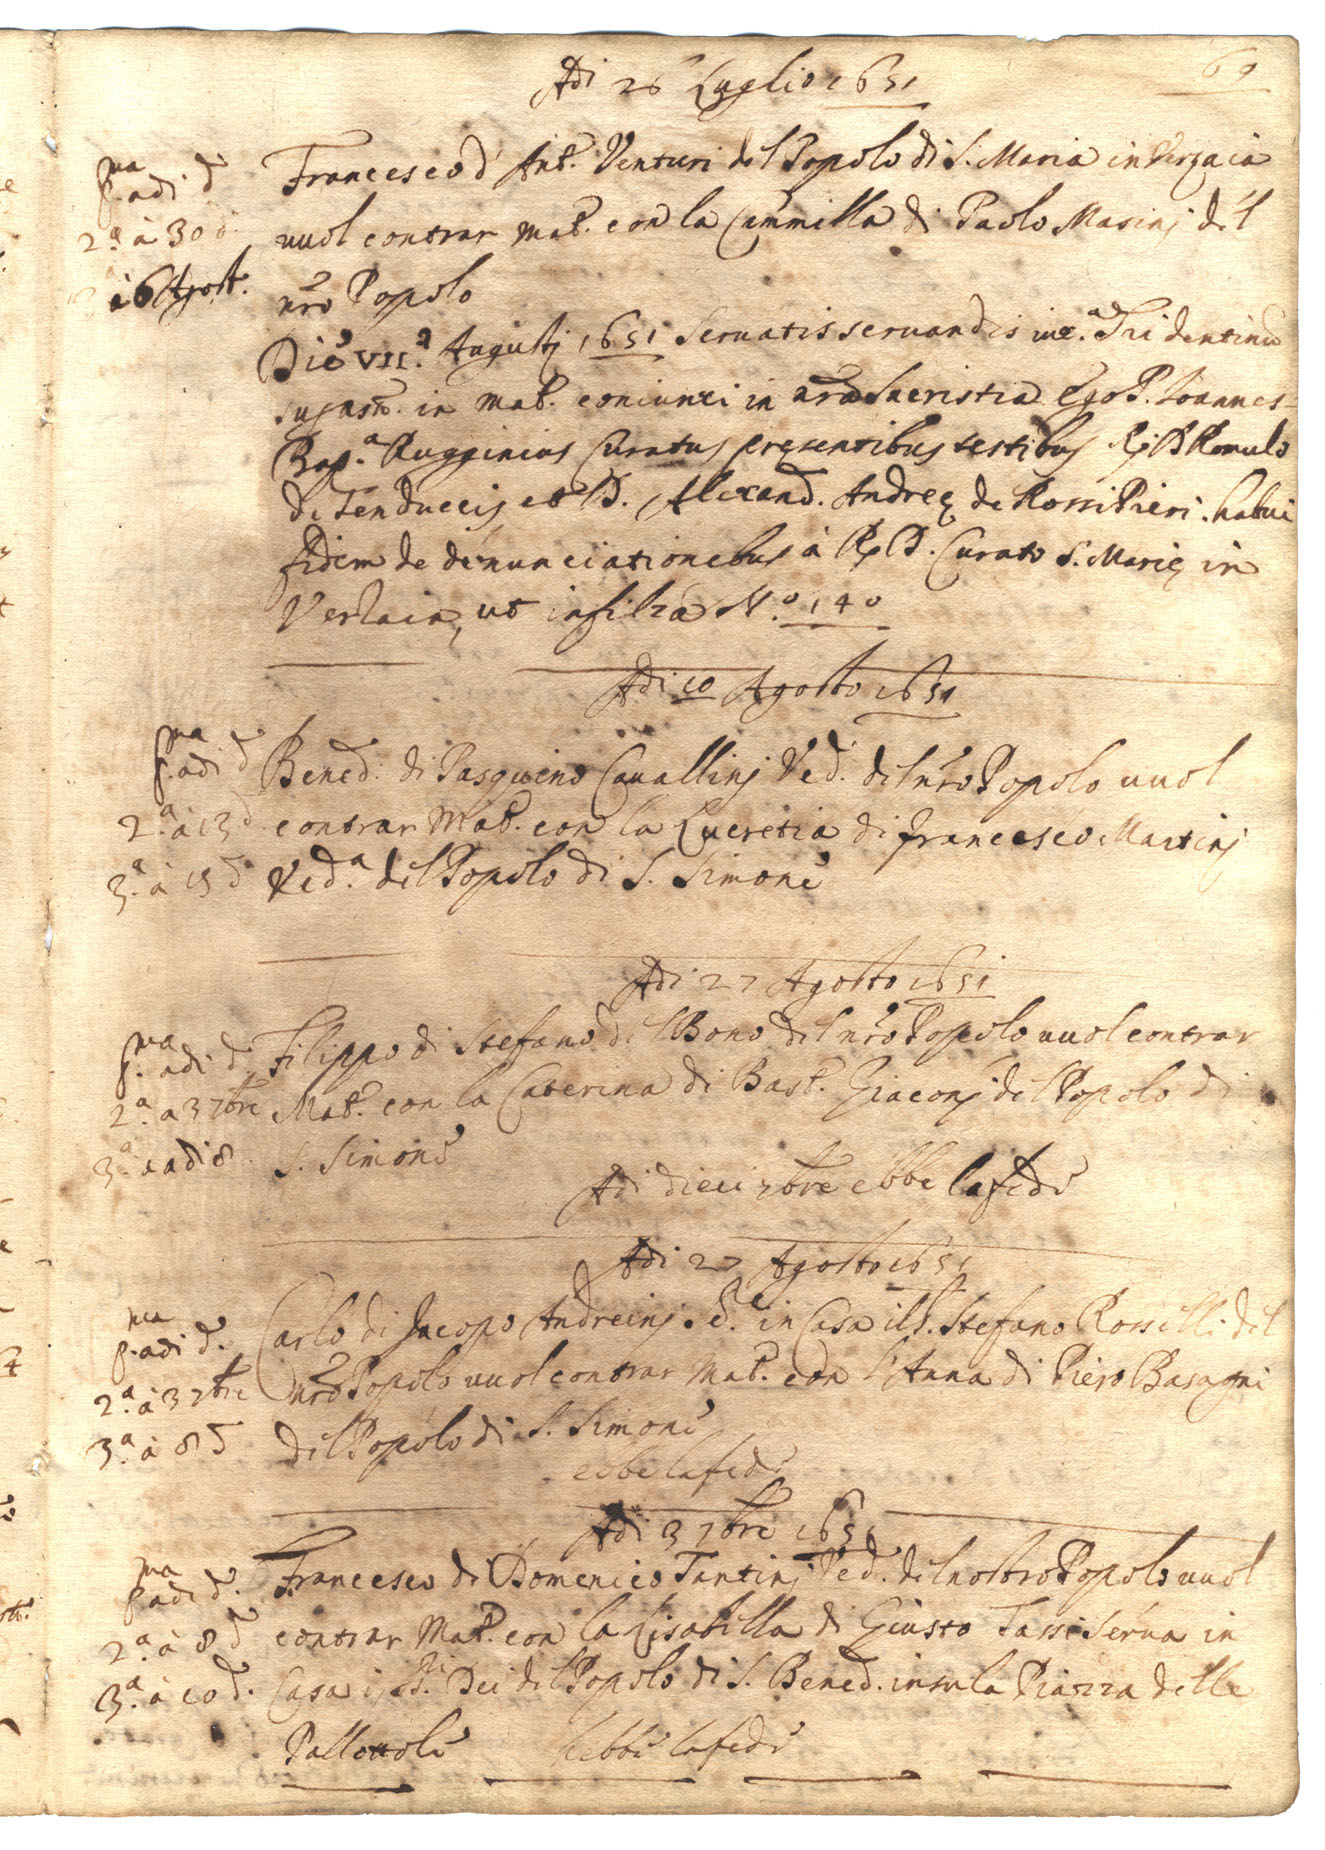 69
Adi 26 Luglio 1651
p.ma adi d.
2.a à 30 d.
à 6 Agost.
Francesco d' Ant.o Venturi del Popolo di S. Maria in Verzaia
vuol contrar mat.o con la Cammilla di Paolo Masinj del
nro Popolo
Die VII.a Augustj 1651 Servatis servandis iux.a Tridentinū
in mat. coniunxi in nra Sacristia Ego P. Joannes
Bap.a Rugginius Curatus presentibus testibus R. D. Romulo
de Tenduccis et D. Alexand. Andreę de Rossi Pieri. habui
fidem de denunciationebus à R. D. Curato S. Marię in
Verzaia, ut infilza N.o 140
Adi 10 Agosto 1651
p.ma adi d
2.a à 13 d
3.a à 15 d
Bened. di Pasquino Cavallinj Ved. del nro Popolo vuol
contrar Mat.o con la Lucretia di francesco Martinj
Ved.a del Popolo di S. Simone
Adi 27 Agosto 1651
p.ma adi d.
2.a a 3 7bre
3.a a adi 8
Filippo di Stefano del Bono del nro Popolo vuol contrar
Mat.o con la Caterina di Bast.o Giaconj del Popolo di
S. Simone
Adi dieci 7bre ebbe la fede
Adi 27 Agosto 1651
p.ma adi d.
2.a à 3 7bre
3.a à 8 d
Carlo di Jacopo Andreinj in Casa il S. Stefano Rosselli del
nro Popolo vuol contrar Mat.o con l'Anna di Piero Basagni
del Popolo di S. Simone
ebbe la fede
Adi 3 7bre 1651
p.ma adi d.
2.a à 8 d
3.a à 10 d.
Francesco di Domenico Tantinj Ved. del nostro Popolo vuol
contrar Mat.o con la Lisabella di Giusto Tassi Serva in
Casa i SS.ri Dei del Popolo di S. Bened. in su la Piazza delle
Pallottole hebbe la fede